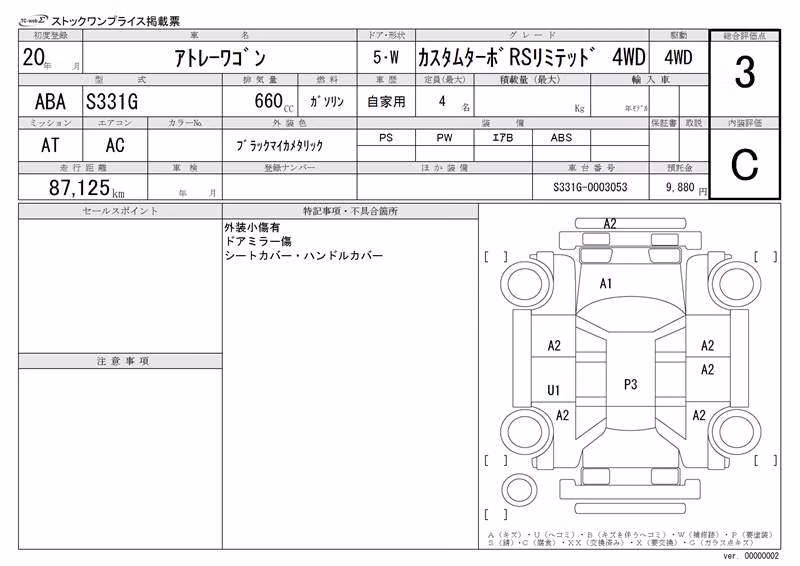 TC-webΣ ストックワンプライス掲載票
初度登録 車名 ドア・形状 グレード 駆動 総合評価点
20年 月 アトレーワゴン 5・W カスタムターボRSリミテッド 4WD 4WD 3
型式 排気量 燃料 車歴 定員(最大) 積載量(最大) 輸入車
ABA S331G 660CC ガソリン 自家用 4名 Kg 年モデル
ミッション エアコン カラーNo. 外装色 装備 保証書 取説 内装評価
AT AC ブラックマイカメタリック PS PW エアB ABS C
走行距離 車検 登録ナンバー ほか装備 車台番号 預託金
87,125km 年 月 S331G-0003053 9,880円
セールスポイント 特記事項・不具合箇所
外装小傷有
ドアミラー傷
シートカバー・ハンドルカバー
注意事項
A2
[ ] [ ]
A1
A2 A2
A2
U1 P3
A2 A2
[ ] [ ]
[ ]
A(キズ)・U(ヘコミ)・B(キズを伴うヘコミ)・W(補修跡)・P(要塗装)
S(錆)・C(腐食)・XX(交換済み)・X(要交換)・G(ガラス点キズ)
ver. 00000002